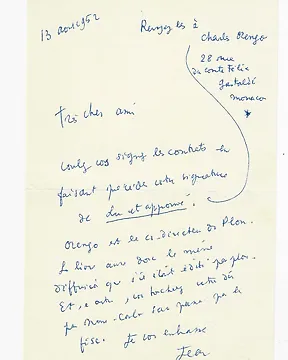 13 août 1952
Renvoyez les à
Charles Orengo
28 rue
du comte Félix
Gastaldi
monaco
Très cher ami
voulez vous signer les contrats en
faisant précéder votre signature
de Lu et approuvé.
Orengo est le co-directeur de Plon.
Le livre aura donc la même
diffusion que s'il était édité par plon.
Et, en outre, vous toucherez votre dû
par Monte-Carlo sans passer par le
fisc. Je vous embrasse
Jean